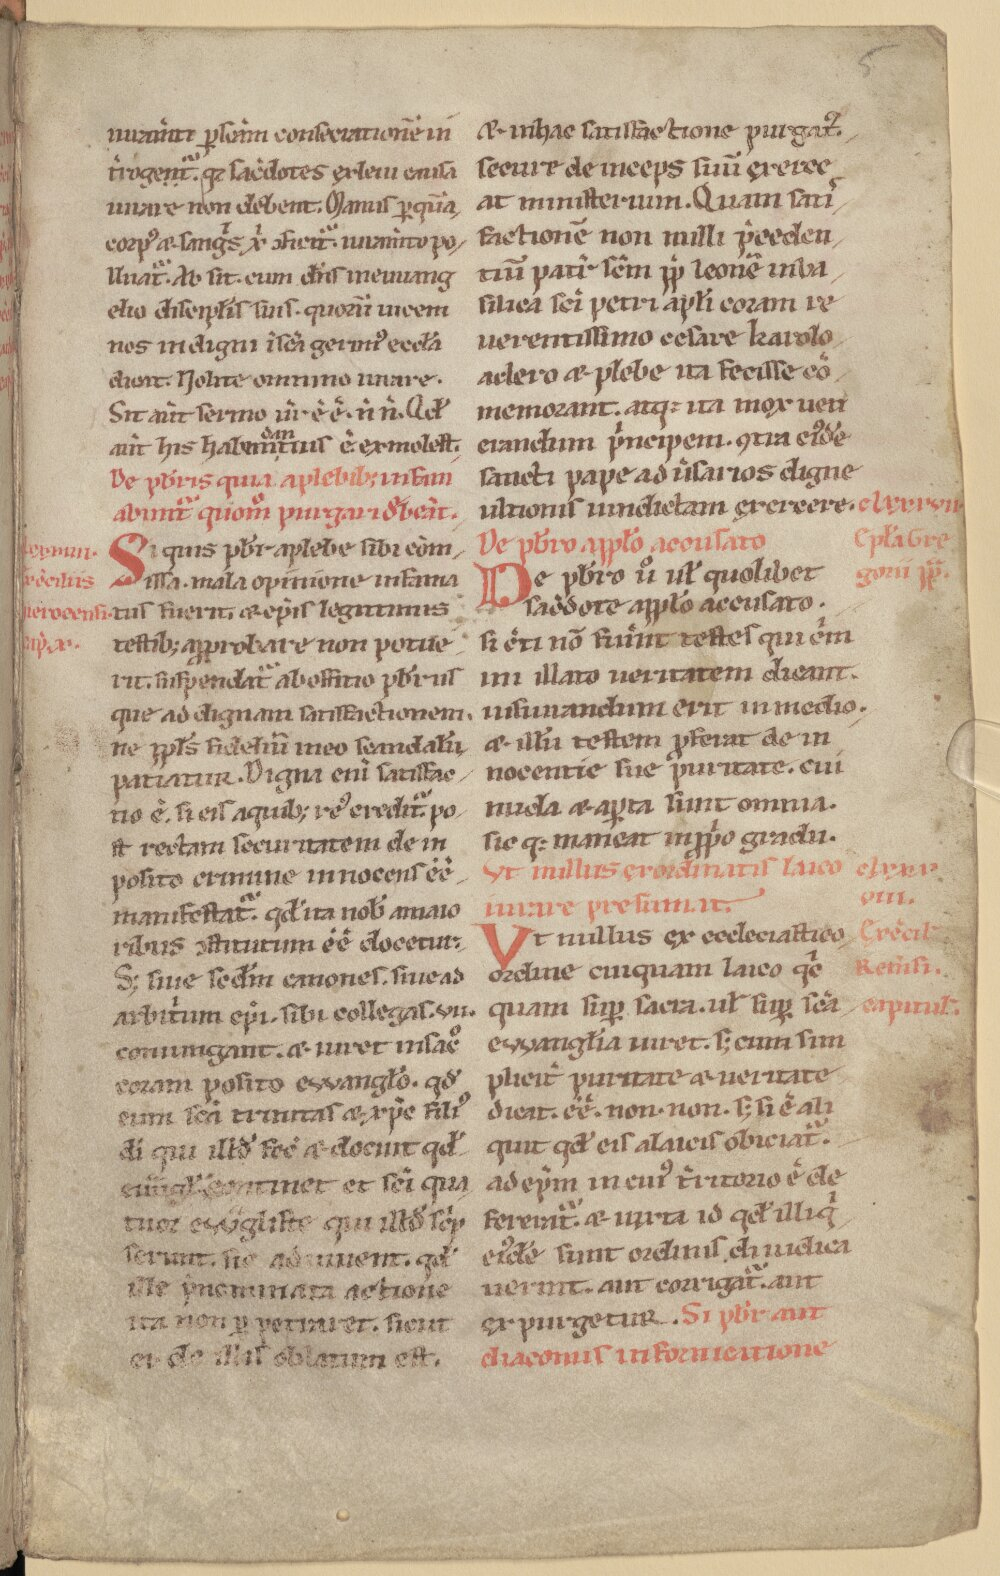 5
iuramt̄ p̄ scām consecrationē in
t̄rogent᷑. q̄ sac̄dotes ex leui causa
iurare non debent. Manus p̄ quā
corp᷒ & sang̅s x̄p̄i ꝯficit᷑. iuram̄to po
lluat᷑. Ab sit. cum dn̄s in euuang
elio discip̄lis suis. quorū uicem
nos indigni ī scā gerim᷒ ecc̄la
dicat. Nolite omnino iurare.
Sit aūt sermo ur̄ ē ē. n̄ n̄. Qd̄
aūt his habundantius ē. ex mo lest.
De pb̄ris qui a plebib; infam
abunt᷑ quom̊ purgari debeāt.
Si quis pb̄r a plebe sibi com
issa. mala opinione infama
tus fuerit. & ep̄is legitimis
testib; approbare non potue
rit. suspendat᷑ ab offitio pb̄r us
que ad dignam satisfactionem.
ne pp̄ls fidelium in eo scandalū
patiatur. Digna eni satisfac
tio ē. si eis a quib; re᷒ credit᷑. po
st rectam securitatem de in
posito crimine innocens ēē
manifestat᷑. qd̄ ita nob̄ a maio
ribus ꝯstitutum ēē docetur.
S; siue sedm̄ canones. siue ad
arbit̄um ep̄i. sibi collegas. vii.
coniungant. & iuret in sac̊
coram posito ewangl̄o. qd̄
eum scā trinitas & xp̄c fili᷒
di qui illd̄ fec̄ & docuit qd̄
euūgl̄. continet et sc̄i qua
tuor ew̄gliste qui illd̄ sc̄ip
serunt. sic adiuuent. qd̄
ille p̄nominata actione
ita non p̄petraret. sicut
ei de illis oblatum est.
& in hac satisfactione purgat᷑.
secure de inceps suū exerce
at ministerium. Quam satis
factionē non nulli p̄ceden
tiū patr̄ scm̄ pp̄ leonē in ba
silica sci petri apl̄i coram re
uerentissimo cesare karolo
a clero & plebe ita fecisse co
memorant. atq; ita mox uen
erandum p̄ncipem. ꝯtra ei᷒dē
sancti pape aduīsarios digne
ultionis uindictam exercere.
De pb̄ro app̄lo accusato
De pb̄ro u̅ ul̄ quolibet
sac̄dote app̄lo accusato.
si c̄ti nō fuīnt testes qui c̄im
ini illato ueritatem dicant.
iusiurandum erit in medio.
& illū testem p̄ferat de in
nocentie sue puritate. cui
nuda & ap̄ta sunt omnia.
sic q; maneat in pp̄o gradu.
Vt nullus ex ordinatis laico
iurare presumat.
Vt nullus ex eccleciastico
ordine cuiquam laico q̄
quam sup̄ sacra. ul̄ sup̄ scā
ewanglia iuret. s; cum sim
plicit̄ puritate & ueritate
dicat. ēē. non. non. s; si ē ali
quit qd̄ eis a laicis obiciat᷑.
ad ep̄m in cui᷒ t̄ritorio ē de
fererat᷑. & iuxta id qd̄ illiq̄
ei᷒dē sunt ordinis di iudica
uerint. aut corrigat᷑. aut
expurgetur. Si pb̄r aut
diaconus in fornicatione
Epl̄a Gre
gorii pp̄.
Ex c̄cil
Remsi.
capitul̄.